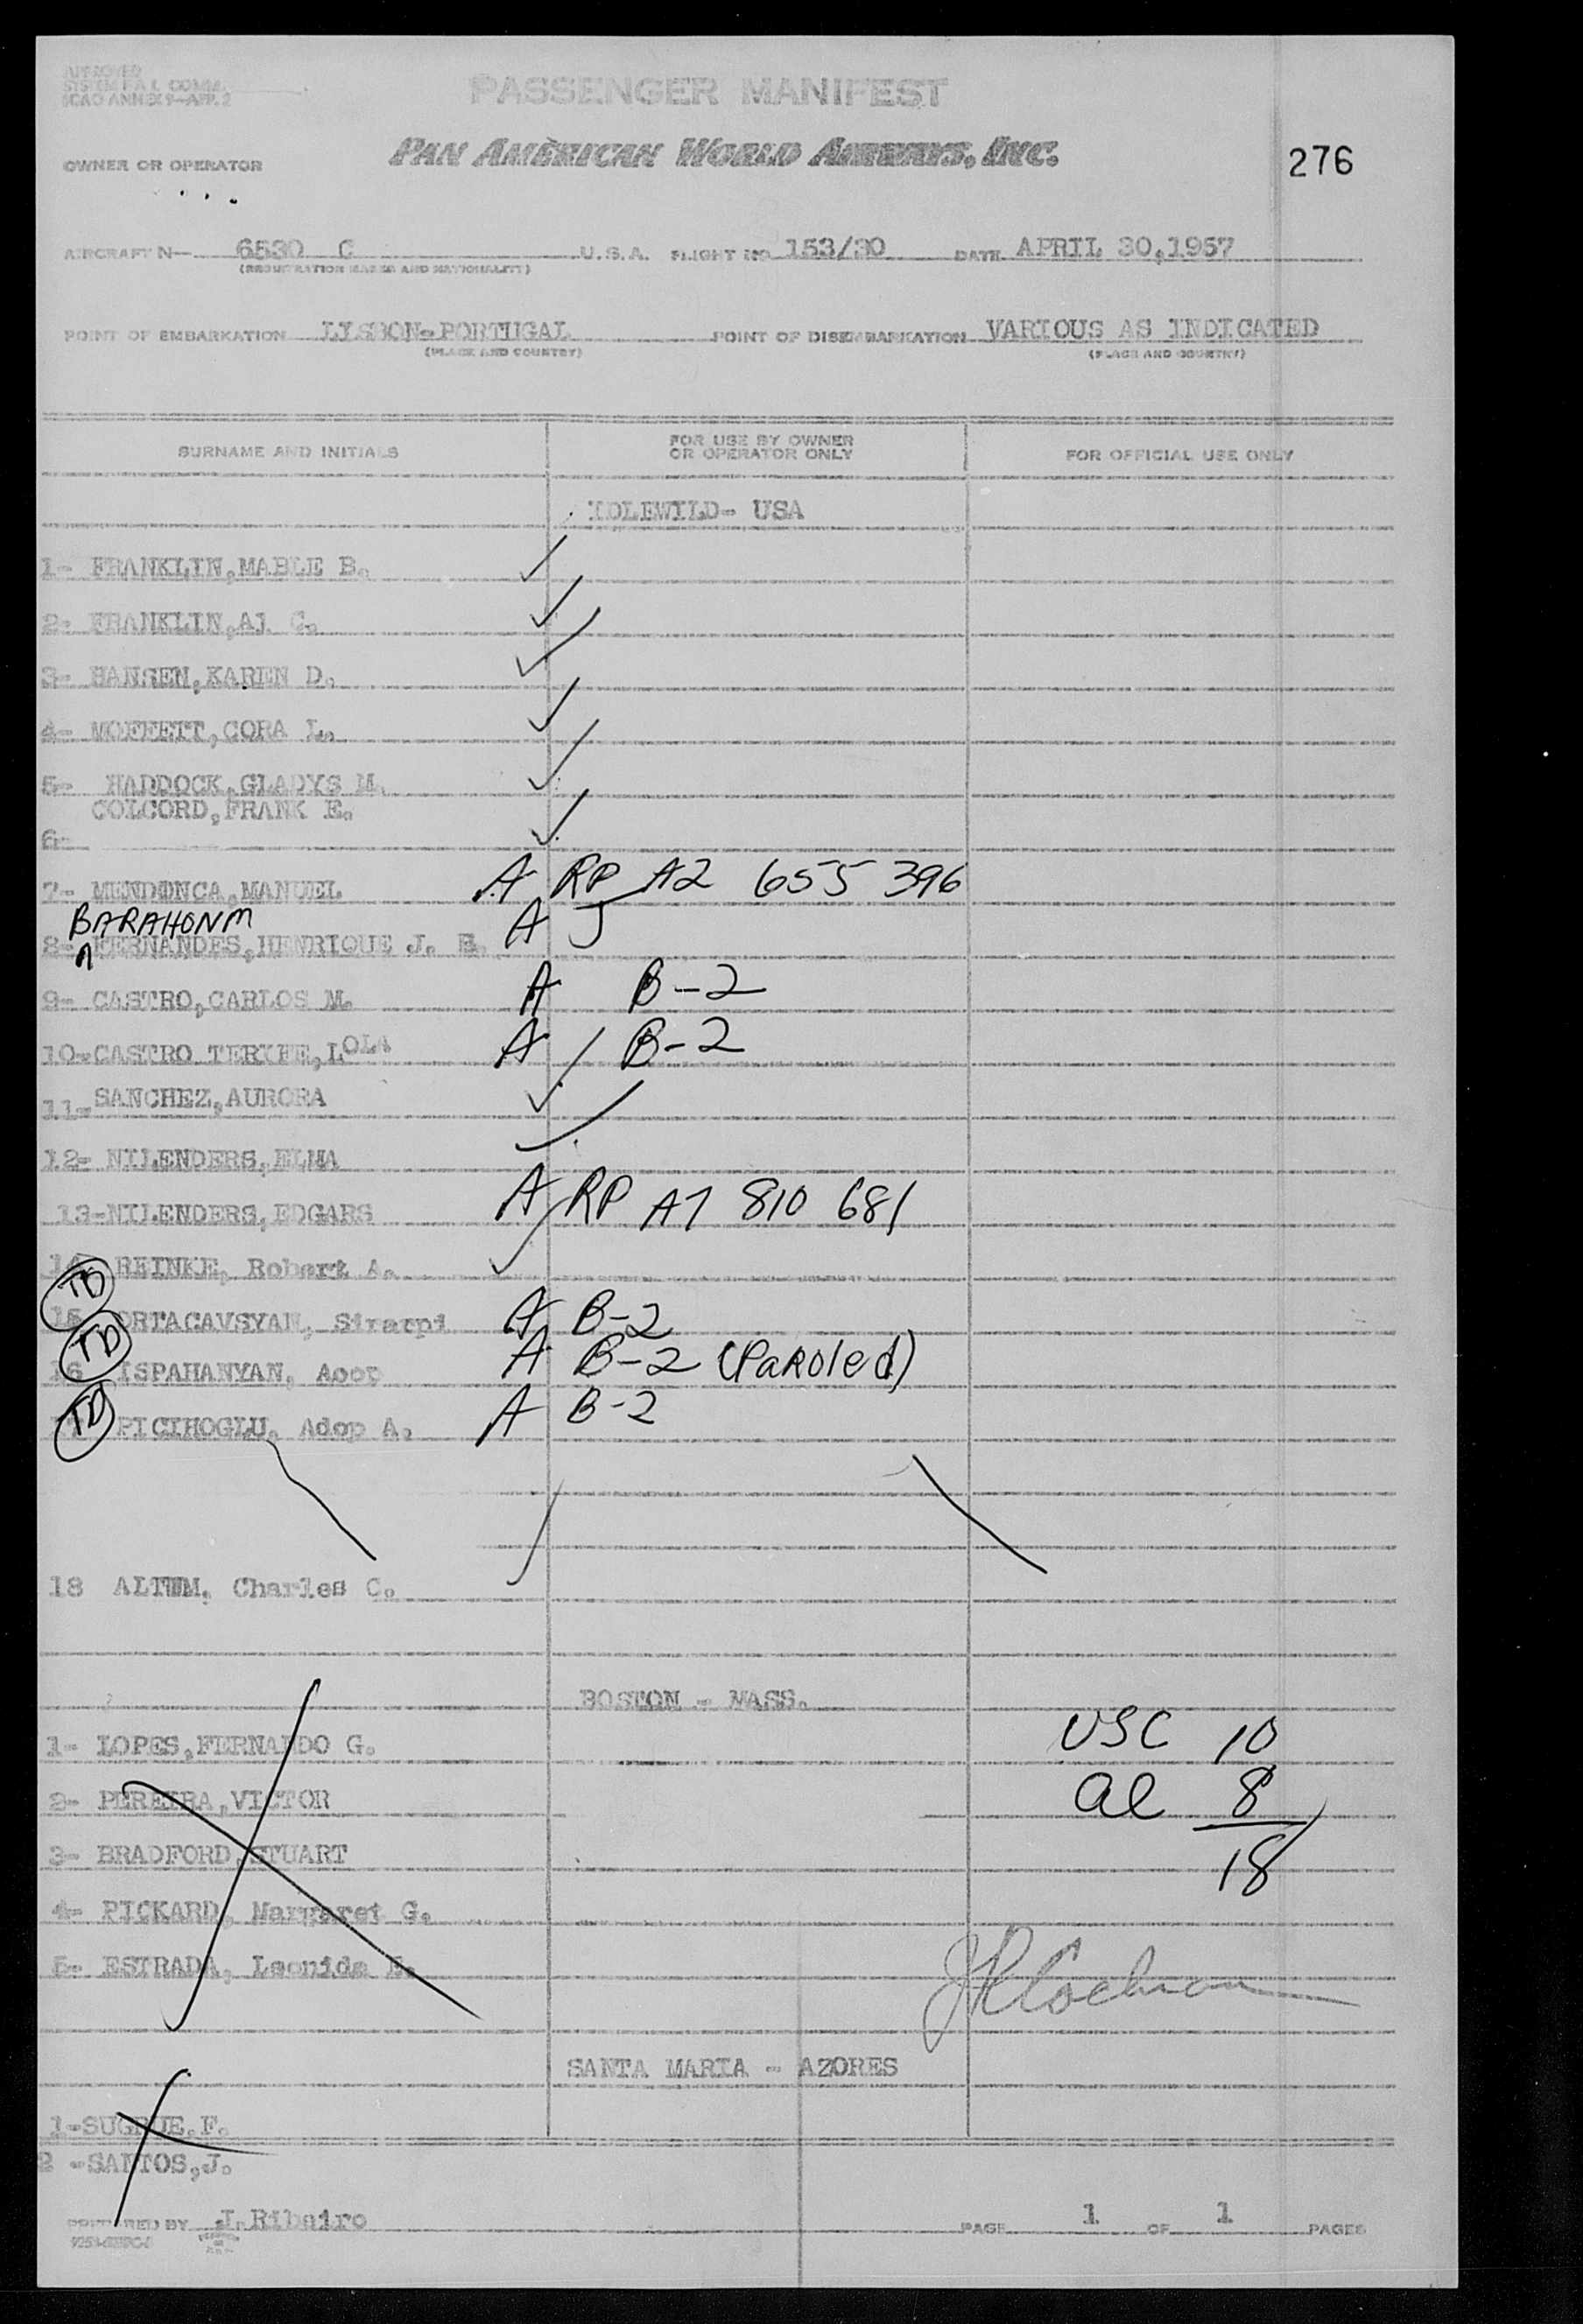 APPROVED
ICAO ANNEX 9—APP. 2
PASSENGER MANIFEST
OWNER OR OPERATOR
PAN AMERICAN WORLD AIRWAYS, INC.
276
AIRCRAFT N— 6530 C U.S.A. FLIGHT NO 153/30 DATE APRIL 30,1957
(REGISTRATION MARKS AND NATIONALITY)
POINT OF EMBARKATION LISBON-PORTUGAL POINT OF DISEMBARKATION VARIOUS AS INDICATED
(PLACE AND COUNTRY) (PLACE AND COUNTRY)
SURNAME AND INITIALS FOR USE BY OWNER OR OPERATOR ONLY FOR OFFICIAL USE ONLY
IDLEWILD- USA
1- FRANKLIN,MABLE B.
2- FRANKLIN,AJ C.
3- HANSEN,KAREN D.
4- MOFFETT,CORA L.
5- HADDOCK,GLADYS M.
COLCORD,FRANK E.
6-
7- MENDONCA,MANUEL A RP A2 655 396
BARAHONM
8- FERNANDES,HENRIQUE J. E. A J
9- CASTRO,CARLOS M. A B-2
10-CASTRO TERIFE,LOLA A B-2
11- SANCHEZ,AURORA
12- NILENDERS,ELMA
13-NILENDERS,EDGARS A RP A7 810 681
14 REINKE, Robert A.
TD
15 ORTACAVSYAN, Sirarpi A B-2
TD
16 ISPAHANYAN, Acop A B-2 (PaRoled)
TD
17 PICIHOGLU, Adop A. A B-2
18 ALTUM, Charles C.
BOSTON - MASS.
1- LOPES,FERNANDO G. USC 10
2- PEREIRA,VICTOR al 8
3- BRADFORD,STUART 18
4- PICKARD, Margaret G.
5- ESTRADA, Leonida E.
JR Cochran
SANTA MARIA - AZORES
1-SUGRUE,F.
2 -SANTOS,J.
PREPARED BY J.Ribeiro PAGE 1 OF 1 PAGES